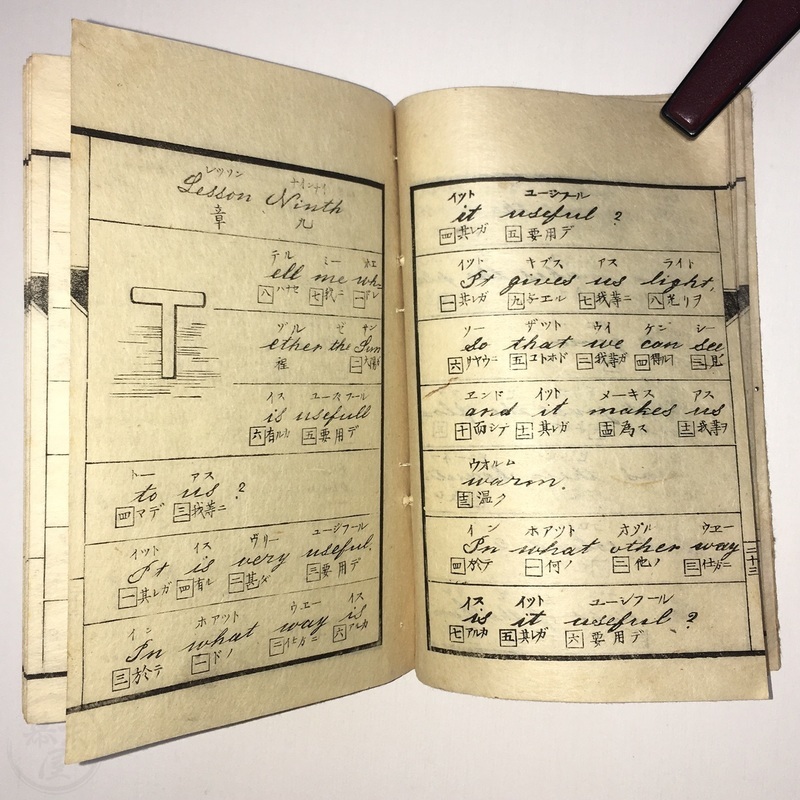 レッソン ナインナイ
Lesson Ninth
章 九
テル ミー
T ell me wh
八 ハナセ 七 我ニ 一
ゼ サン
ether the Sun
二
イス ユースフール
is usefull
六 有ルカ 五 要用デ
トー アス
to us ?
四 マデ 三 我等ニ
イット イス ヴリー ユージフール
It is very useful.
一 其レガ 四 有ル 二 甚ダ 三 要用デ
イン ホアット ウエー イス
In what way is
三 於テ 一 ドノ 二 仕方ニ 六 アルカ
イット ユージフール
it useful ?
四 其レガ 五 要用デ
イット キブス アス ライト
It gives us light,
一 其レガ 九 与エル 七 我等ニ 八 光リヲ
ソー ザット ウイ ケン シー
so that we can see
六 五 コトホド 一 我等ガ 四 得ル 三 見
エンド イット メーキス アス
and it makes us
十 而シテ 其レガ 為ス 我等ヲ
ウオルム
warm.
温ク
イン ホアット ヲゾル ウエー
In what other way
四 於テ 一 何ノ 二 他ノ 三 仕方ニ
二十三
イス イット ユージフール
is it useful ?
七 アルカ 五 其レガ 六 要用デ